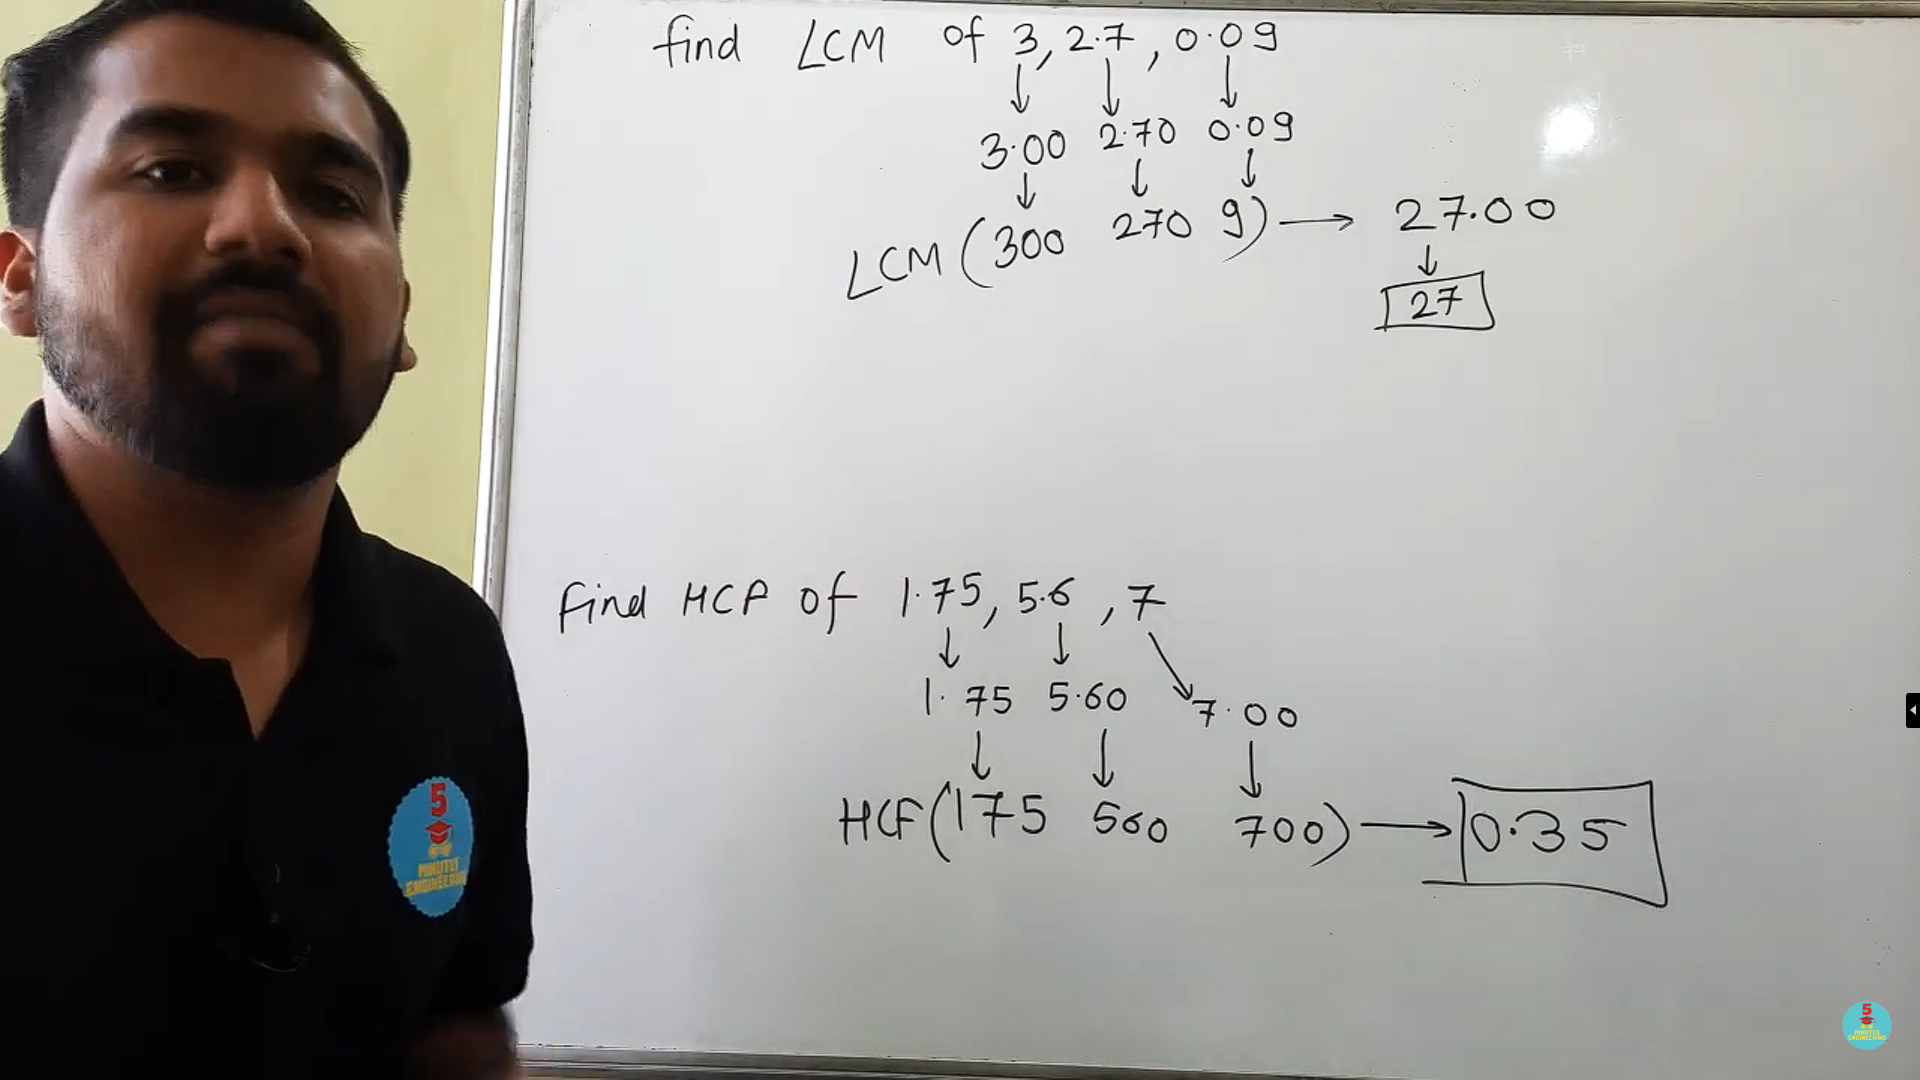 find LCM of 3, 2.7, 0.09
↓ ↓ ↓
3.00 2.70 0.09
↓ ↓ ↓
LCM (300 270 9) → 27.00
↓
27
Find HCF of 1.75, 5.6, 7
↓ ↓ ↘
1.75 5.60 7.00
↓ ↓ ↓
HCF (175 560 700) → 0.35
5
MINUTES
ENGINEERING
5
MINUTES
ENGINEERING